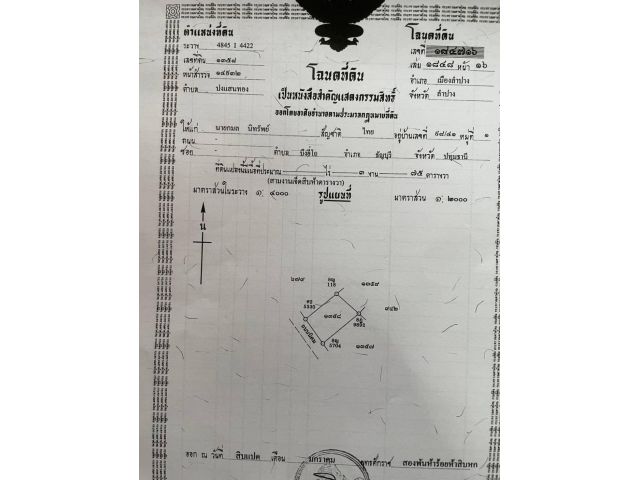 ตำแหน่งที่ดิน
ระวาง 4845 I 4422
เลขที่ดิน ๑๓๕๘
หน้าสำรวจ ๑๔๕๓๒
ตำบล ปงแสนทอง
โฉนดที่ดิน
เลขที่ ๑๘๔๗๑๖
เล่ม ๑๘๔๘ หน้า ๑๖
อำเภอ เมืองลำปาง
จังหวัด ลำปาง
โฉนดที่ดิน
เป็นหนังสือสำคัญแสดงกรรมสิทธิ์
ออกโดยอาศัยอำนาจตามประมวลกฎหมายที่ดิน
ให้แก่ นายกมล นิทรัพย์ สัญชาติ ไทย อยู่บ้านเลขที่ ๙๘/๔๑ หมู่ที่ ๑
ถนน -
ซอย - ตำบล บึงยี่โถ อำเภอ ธัญบุรี จังหวัด ปทุมธานี
ที่ดินแปลงนี้มีเนื้อที่ประมาณ - ไร่ ๓ งาน ๗๕ ตารางวา
(สามงานเจ็ดสิบห้าตารางวา)
มาตราส่วนในระวาง ๑: ๔๐๐๐ รูปแผนที่ มาตราส่วน ๑: ๒๐๐๐
น
๒๗๙
118
๑๓๕๙
5330
๑๓๕๘
๙๔๒
9892
ถนนดิน
5704
๑๓๕๗
ออก ณ วันที่ สิบแปด เดือน มกราคม พุทธศักราช สองพันห้าร้อยห้าสิบหก